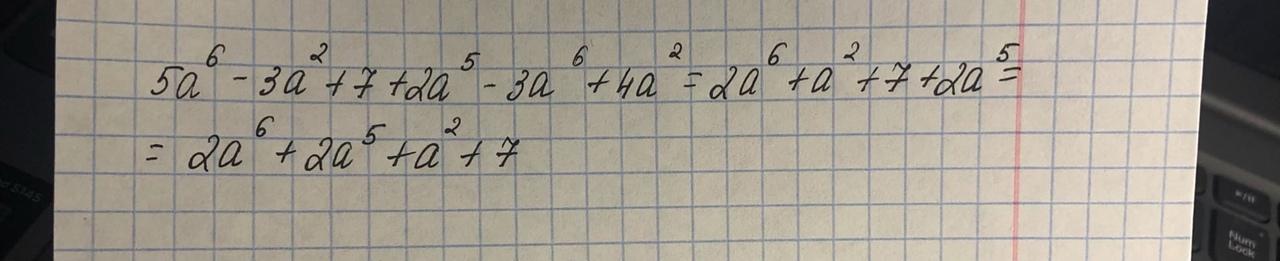 5a⁶ - 3a² + 7 + 2a⁵ - 3a⁶ + 4a² = 2a⁶ + a² + 7 + 2a⁵ =
= 2a⁶ + 2a⁵ + a² + 7
Num
Lock